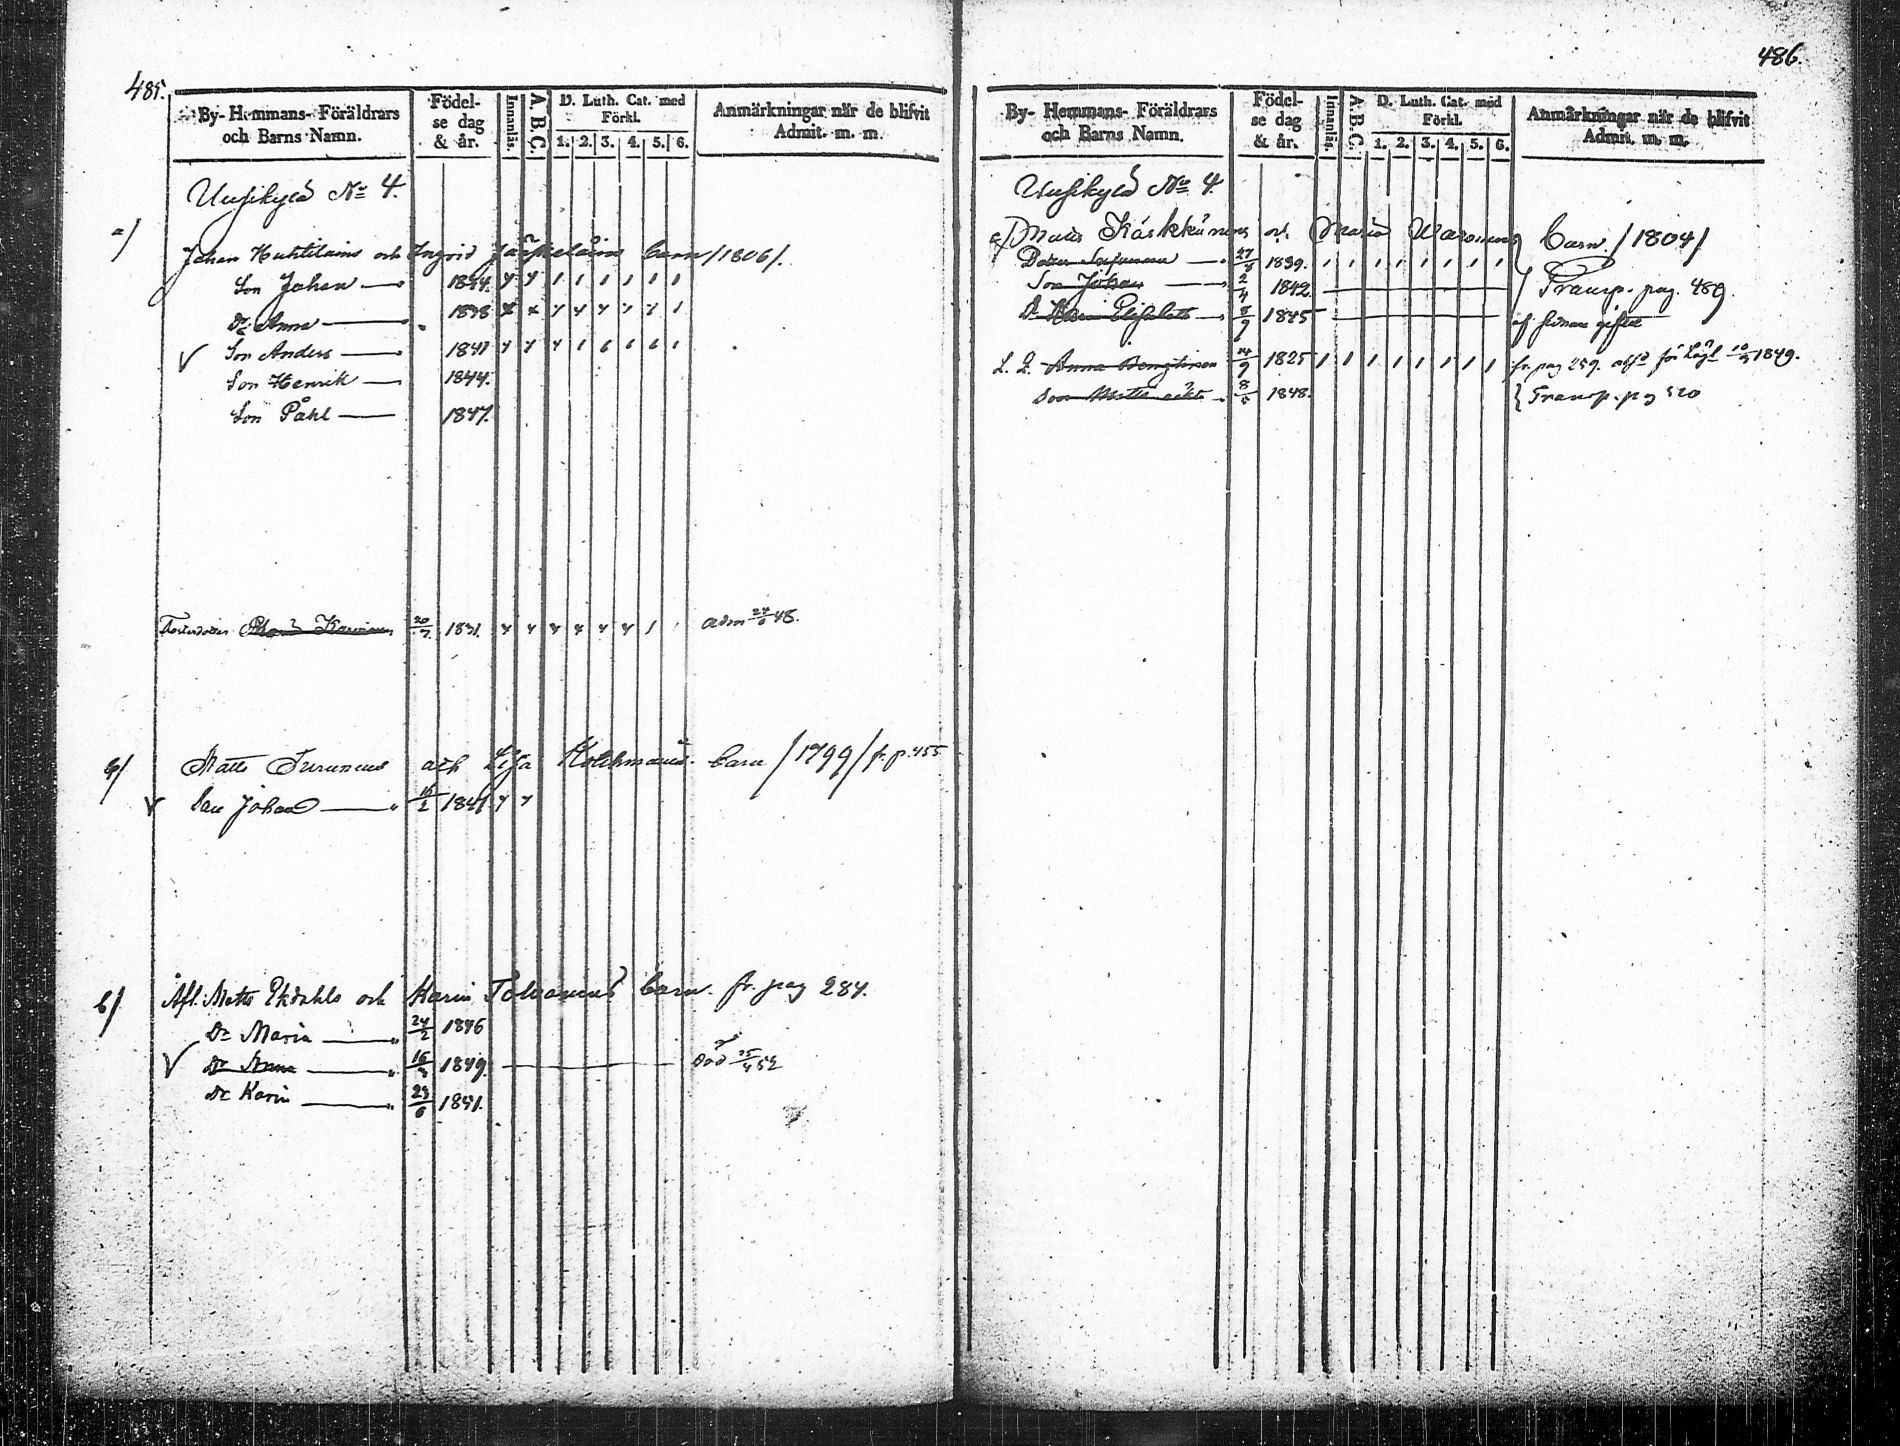 485.
By- Hemmans- Föräldrars och Barns Namn. Födelse dag & år. Innanläs. A.B.C. D. Luth. Cat. med Förkl. 1. 2. 3. 4. 5. 6. Anmärkningar när de blifvit Admit. m. m.
Uusikylä No 4.
a/ Johan Huhtilains och Ingrid barn /1806/.
Son Johan
Dr Anna 1838
Son Anders 1841
Son Henrik 1844.
Son Påhl 1847.
Fosterdotter 1831. adm 48.
Matts Turunens och Lisa barn /1799/ fr. p. 455
Son Johan 16/2 1841
b/ Afl. Matts Ekdahls och Karin Tolvanens barn. fr. pag 284.
Dr Maria 24/2 1846
Dr Anna 1849. Död 52
Dr Karin 23/6 1851.
486.
By- Hemmans- Föräldrars och Barns Namn. Födelse dag & år. Innanläs. A.B.C. D. Luth. Cat. med Förkl. 1. 2. 3. 4. 5. 6. Anmärkningar när de blifvit Admit. m. m.
Uusikylä No 4.
Käskkünens och Maria Waronens barn. /1804/
Dotter 1839.
Son Johan 2/4 1842. Transp. pag. 489.
Dr Elisabeth 8/9 1845
Anna Bengtinen 14/9 1825 fr. pag 259. 1849.
Son Matts 1848. Transp. pag 520